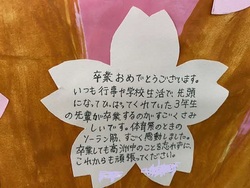 卒業おめでとうございます。
いつも行事や学校生活で先頭
になってひっぱってくれていた3年生
の先輩が卒業するのがすごくさみ
しいです。体育祭のときの
ソーラン節、すごく感動しました。
卒業しても高洲中のことを忘れずに、
これからも頑張ってください。